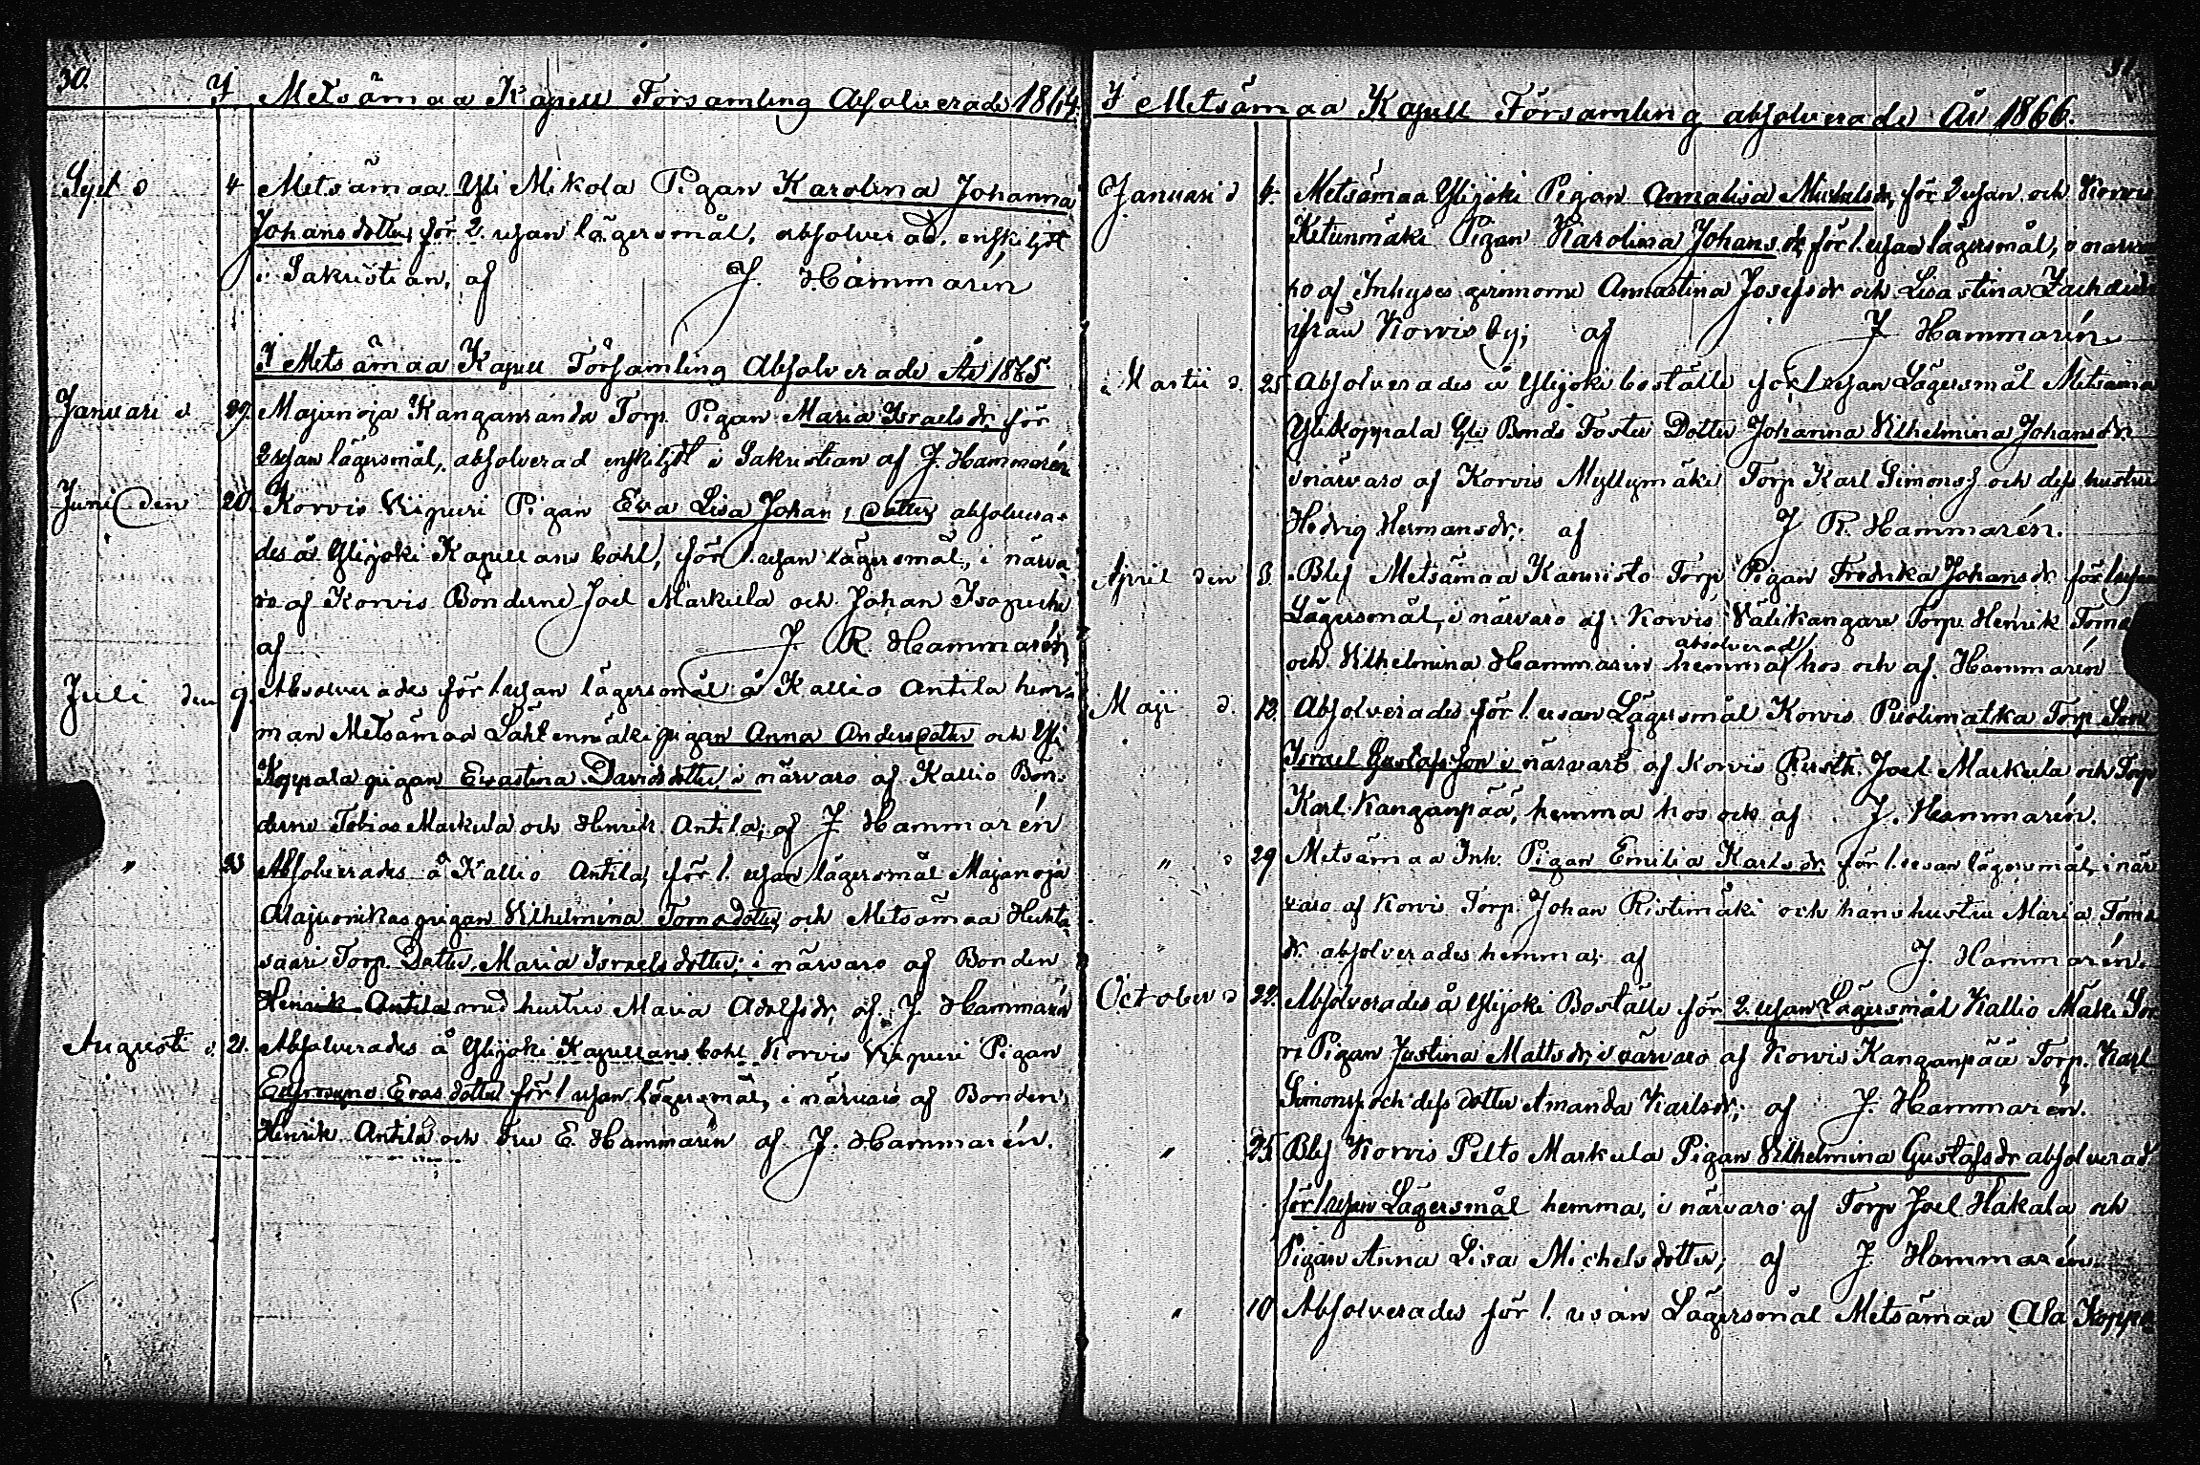 30.
I Metsämaa Kapell Församling Absolverade 1864.
Sept d 4 Metsämaa Yli Mikola Pigan Karolina Johanna
Johans dotter, för 2. resan lägersmål, absolverad, enskiljdt
i Sakristian, af J. Hammarén
I Metsämaa Kapell Församling Absolverade År 1865.
Januari d 29. Majanoja Kanganranda Torp. Pigan Maria Israels dr, för
2 resan lägersmål, absolverad enskiljdt i Sakristian af J. Hammarén
Juni den 20. Korvis Pigan Eva Lisa Johans dotter, absolvera-
des å Ylijoki Kapellans bohl, för 1. resan lägersmål, i närva
ro af Korvis Bönderne Joel Markula och Johan Isopere
af J. R. Hammarén
Juli den 9. Absolverades för 1 resan lägersmål å Kallio Antila hem-
man Metsämaa Lähtenmäki pigan Anna Andersdotter och Yli
Koppala pigan Evastina Davidsdotter, i närvaro af Kallio Bön-
derne Tobias Markula och Henrik Antila; af J Hammarén
" 23 Absolverades å Kallio Antila, för 1. resan lägersmål Majanoja
Alajuonikas pigan Vilhelmina Tomasdotter, och Metsämaa Huhta-
saari Torp. Dotter Maria Israels dotter; i närvaro af Bonden
Henrik Antila med hustru Maria Adolfsdr, af J Hammarén
Augusti d. 21. Absolverades å Ylijoki Kapellans bohl Korvis Pigan
Eufrosyne Evas dotter för 1 resan lägersmål, i närvaro af Bonden
Henrik Antila och Fru E. Hammarén af J. Hammarén.
31.
I Metsämaa Kapell Församling absolverade År 1866.
Januari d 6. Metsämaa Ylijoki Pigan Annalisa Michelsdr, för 2 resan och Korvis
Ketunmäki Pigan Karolina Johans dr, för 1. resan lägersmål, i närva
ro af Inhyses qvinnorne Annastina Josefsdr och Lisa stina
ifrån Korvis by; af J Hammarén
Martii d. 25. Absolverades å Ylijoki boställe för 1 resan Lägersmål Metsämaa
Ylikoppala Yli Bonds Foster Dotter Johanna Vilhelmina Johans dr.
i närvaro af Korvis Myllymäki Torp Karl Simonss och dess hustru
Hedvig Hermansdr; af J R. Hammarén.
April den 3. Blef Metsämaa Kannisto Torp Pigan Fredrika Johansdr för 1 resan
Lägersmål, i närvaro af Korvis Välikangare Torp. Henrik Toma
och Vilhelmina Hammarén absolverad hemma hos och af Hammarén
Maji d. 12. Absolverades för 1. resan Lägersmål Korvis Puolimatka Torp Son
Israel Gustafsson i närvaro af Korvis Rusth. Joel Markula och Torp
Karl Kanganpää, hemma hos och af J. Hammarén.
" d 29 Metsämaa Inh. Pigan Emilia Karls dr för 1. resan lägersmål, i när
varo af Korvis Torp. Johan Ristimäki och hans hustru Maria Toma
dr. absolverades hemma; af J. Hammarén.
October d 22. Absolverades å Ylijoki Boställe för 2. resan Lägersmål Kallio Mäki Tor
p Pigan Justina Matts dr, i närvaro af Korvis Kanganpää Torp. Karl
Simonss och dess dotter Amanda Karlsdr; af J. Hammarén.
" 25. Blef Korvis Pelto Markula Pigan Vilhelmina Gustafs dr absolverad
för 1 resan Lägersmål hemma, i närvaro af Torp Joel Hakala och
Pigan Anna Lisa Michels dotter; af J. Hammarén
" 10 Absolverades för 1. resan Lägersmål Metsämaa Ala Koppa